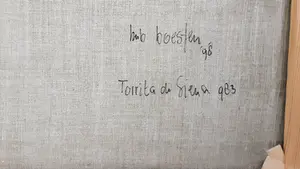 bub boesten
98
Torrita di Siena 983